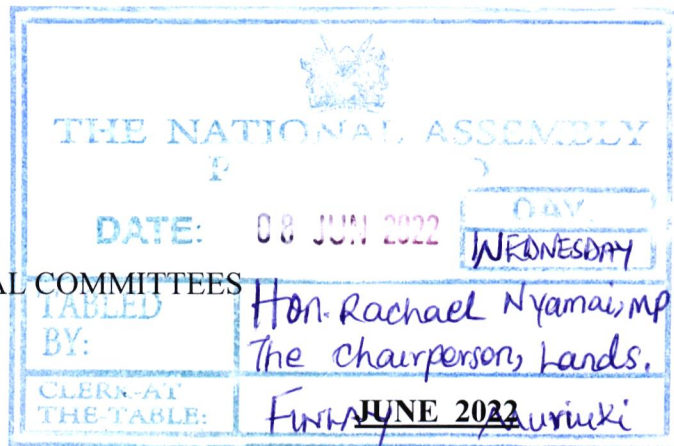 THE NATIONAL ASSEMBLY
P
DATE: 08 JUN 2022 DAY.
WEDNESDAY
AL COMMITTEES
TABLED BY: Hon. Rachael Nyamai, MP
The chairperson, Lands.
CLERK-AT THE-TABLE:
JUNE 2022